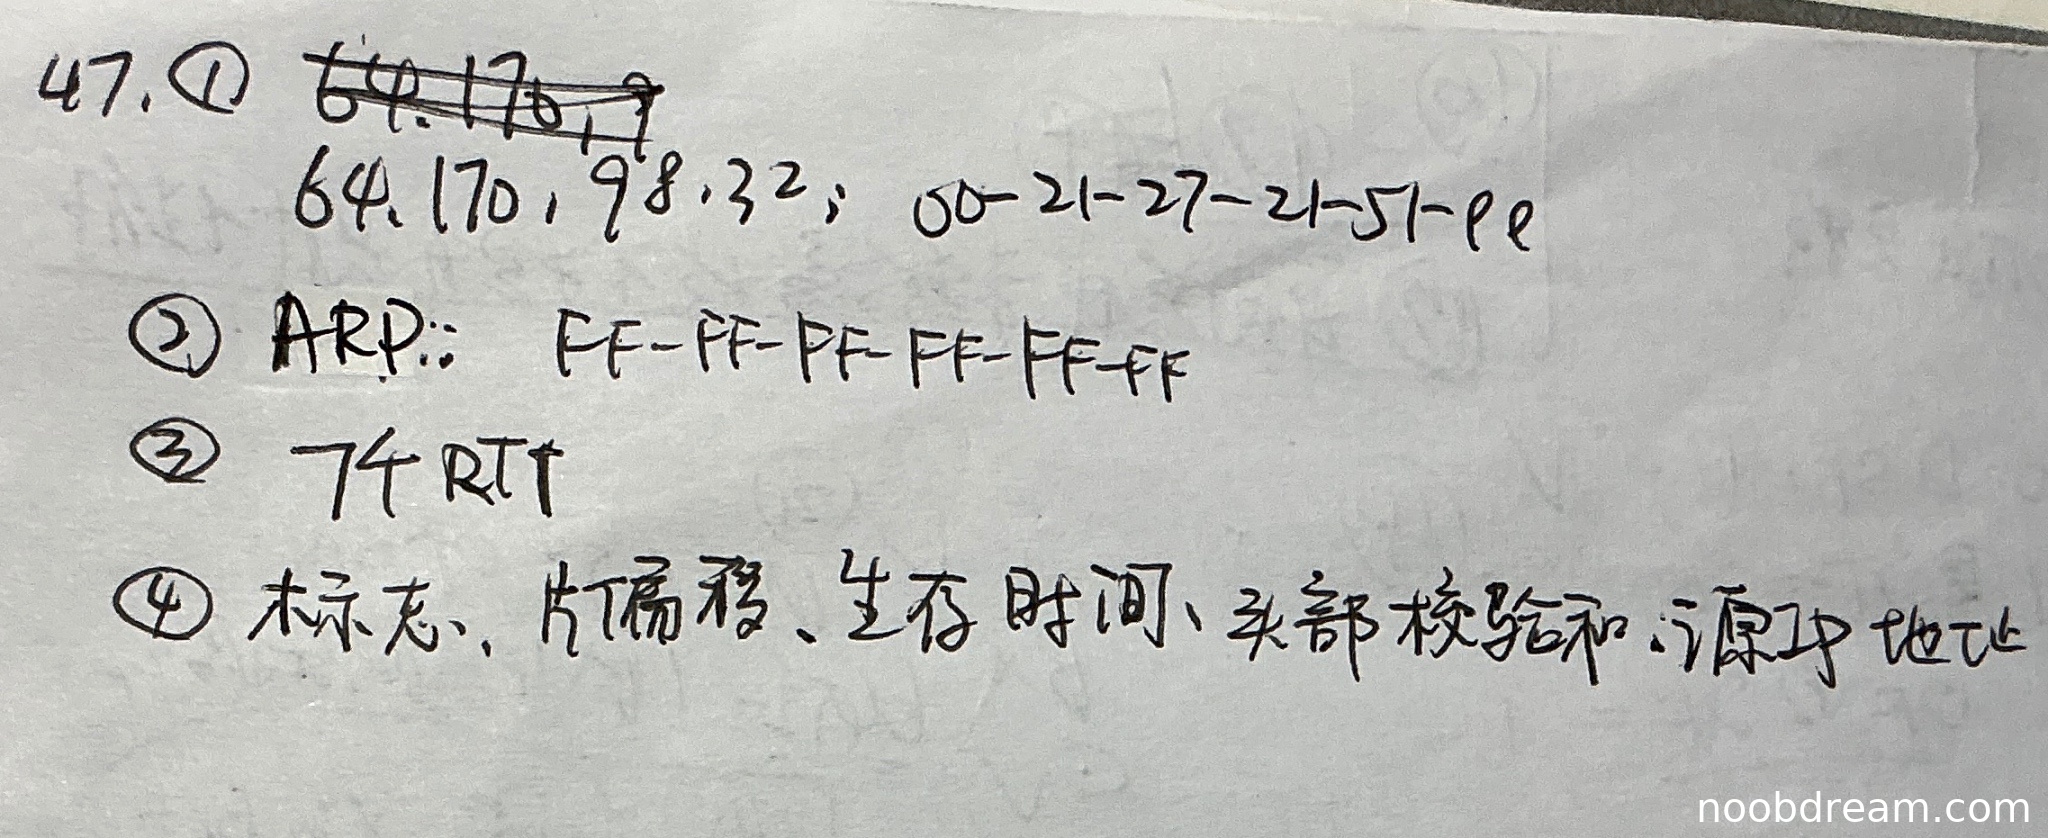 47. ① 64.170.9
64.170.98.32; 00-21-27-21-51-ee
② ARP:: FF-FF-FF-FF-FF-FF
③ 7个RTT
④ 标志、片偏移、生存时间、头部校验和、源IP地址
noobdream.com